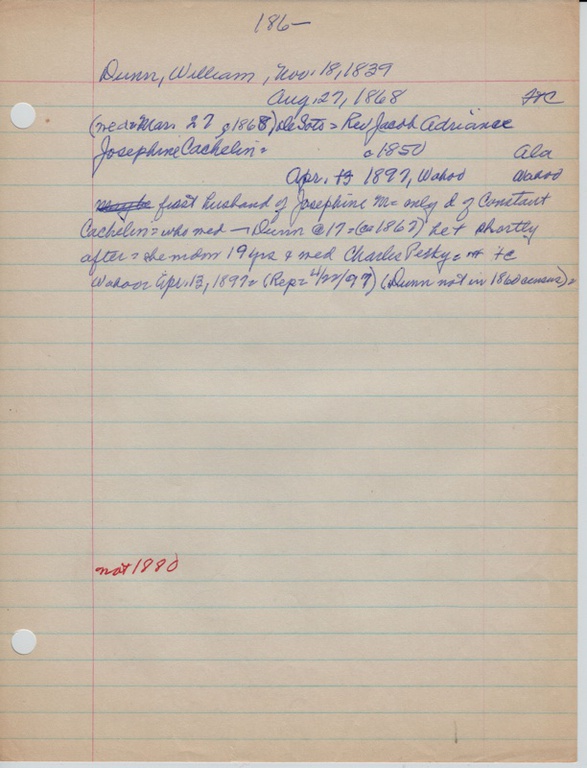 186-
Dunn, William, Nov. 18, 1839
Aug. 27, 1868 Ft C
(med = Mar. 27, 1868) DeSoto = Rev Jacob Adriance
Josephine Cachelin = c 1850 Ala
Apr. 13 1897, Wahoo Wahoo
maybe first husband of Josephine M = only d of Constant
Cachelin = who med — Dunn @ 17 = (ca 1867) he + shortly
after = she mdm 19 yrs & med Charles = Ft C
Wahoo = Apr. 13, 1897 = (Rep = 4/22/97) (Dunn not in 1860 census) =
not 1880